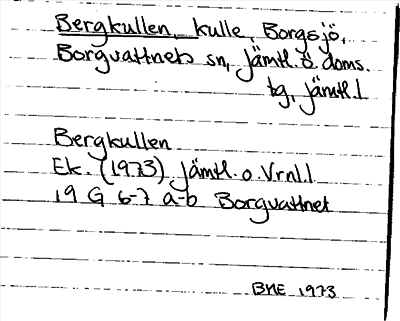 Bergkullen, kulle, Borgsjö,
Borgvattnets sn, Jämtl. ö. doms.
tg, Jämtl. l
Bergkullen
Ek. (1973) Jämtl. o. Vrnl. l
19 G 6-7 a-b Borgvattnet
BME 1973